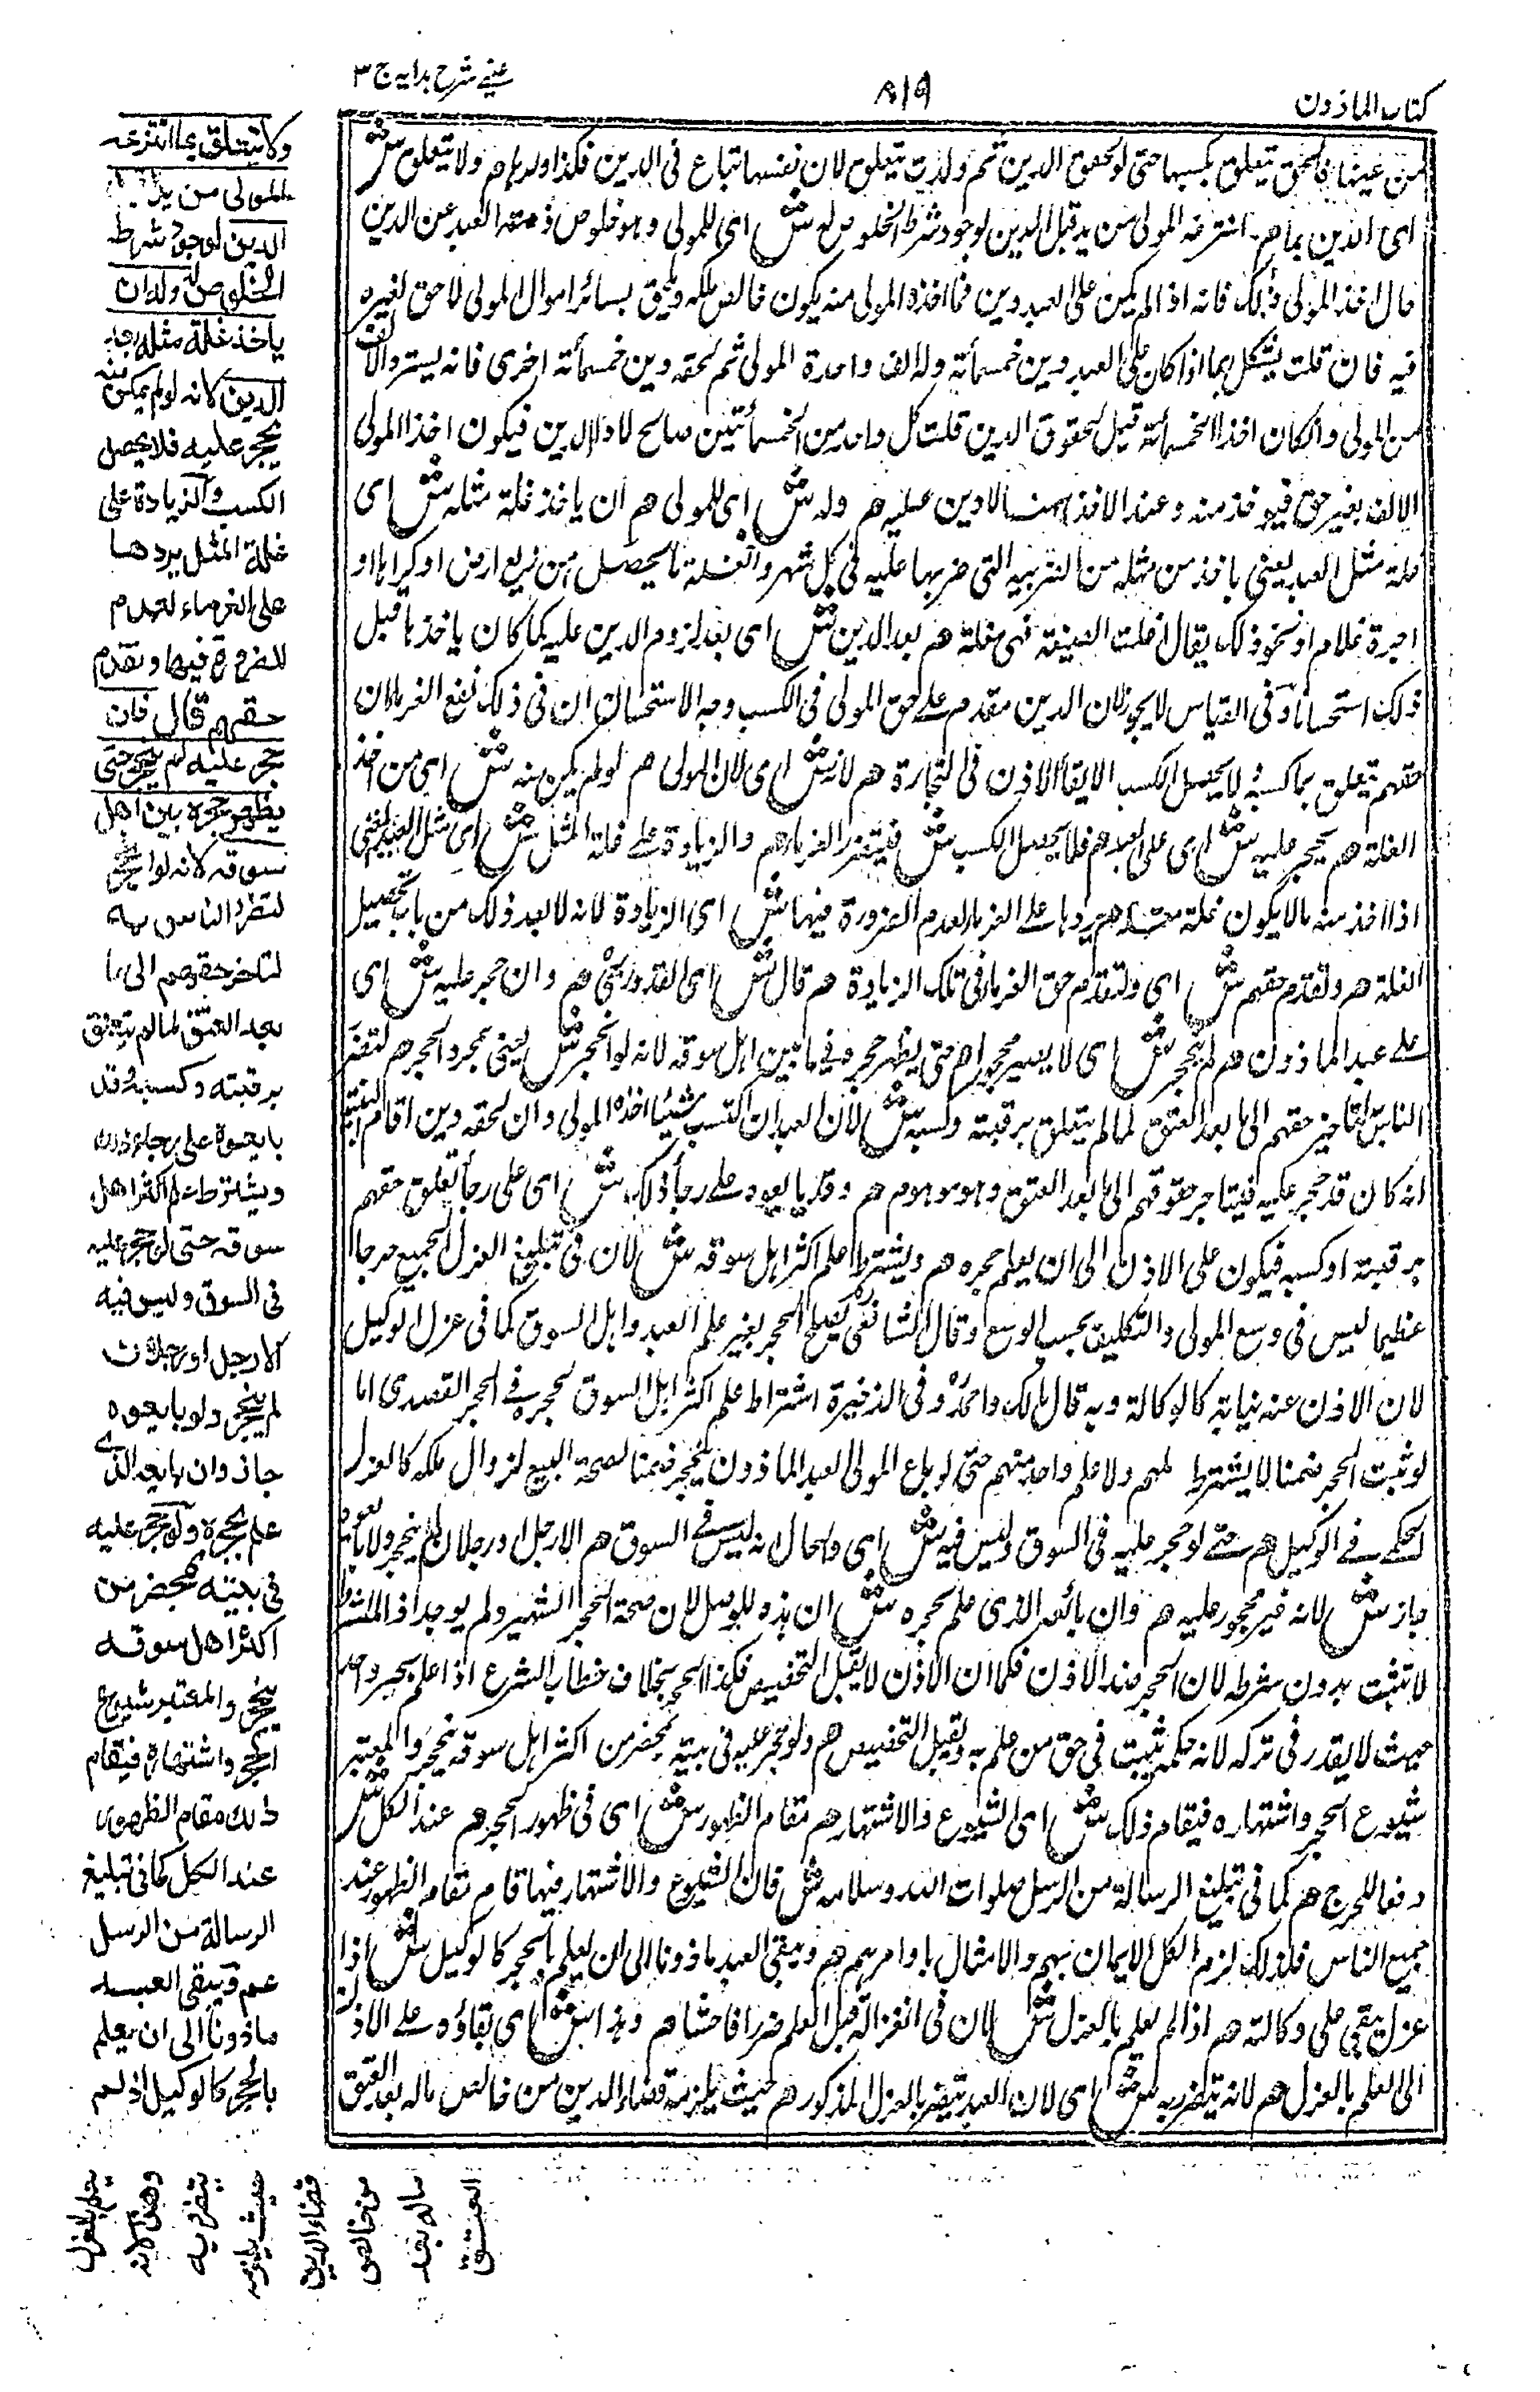 كتاب الماذون
٨١٩
عيني شرح هدايه ج ٣
من عينها فالحق يتعلق بكسبها حتى لو لحق الدين ثم ولدت يتعلق لان نفسها تباع فى الدين فكذا ولدها هم ولا يتعلق ش
اى الدين بما هم انتزعه المولى من يده قبل الدين لوجود شرط الخلوص له ش اى للمولى وهو خلوص ذمته العبد عن الدين
حال اخذ المولى ذلك فانه اذا لم يكن على العبد دين فما اخذه المولى منه يكون خالص ملكه ويلحق بسائر اموال المولى لا حق لغيره
فيه فان قلت يشكل بما اذا كان على العبد دين خمسمأته وله الف واخذه المولى ثم لحقه دين خمسمأته اخرى فانه يسترد الالف
من المولى وان كان اخذ الخمسمأته قبل لحوق الدين قلت كل واحد من الخمسمأتين صالح لاداء الدين فيكون اخذ المولى
الالف بغير حق فيوخذ منه وعند الاخذ لا دين عليه هم وله ش اى للمولى هم ان ياخذ غلة مثله ش اى
غلة مثل العبد يعنى ياخذ من مثله من الضريبه التى ضربها عليه فى كل شهر والغلة ما يحصل من ريع ارض او كرائها او
اجرة غلام او نحو ذلك يقال اغلت الضيعة فهى مغلة هم بعد الدين ش اى بعد لزوم الدين عليه كما كان ياخذها قبل
ذلك استحسانا وفى القياس لا يجوز لان الدين مقدم على حق المولى فى الكسب وجه الاستحسان ان فى ذلك نفع الغرماء لان
حقهم يتعلق بما كسبه ولا يحصل الكسب الا ببقاء الاذن فى التجارة هم لانه ش اى لان المولى هم لو لم يكن منه ش اى من اخذ
الغلة هم يحجر عليه ش اى على العبد هم فلا يحصل الكسب ش فيتضرر الغرماء هم والزيادة على غلة المثل ش اى مثل العبد يعنى
اذا اخذ منه ما لا يكون غلة مثله هم يردها على الغرماء لعدم الضرورة فيها ش اى الزيادة لانه لا يعد ذلك من باب تحصيل
الغلة هم ولتقدم حقهم ش اى ولتقدم حق الغرماء فى تلك الزيادة هم قال ش اى القدورى هم وان حجر عليه ش اى
على عبد الماذون هم لم ينحجر ش اى لا يصير محجورا هم حتى يظهر حجره فيما بين اهل سوقه لانه لو انحجر ش يعنى بمجرد الحجر هم لتضرر
الناس لتاخير حقهم الى ما بعد العتق لما لم يتعلق برقبته وكسبه ش لان العبد ان اكتسب شيئا اخذه المولى وان لحقه دين اقام البينة
انه كان قد حجر عليه فيتاخر حقوقهم الى ما بعد العتق وهو موهوم هم وقد بايعوه على رجاء ذلك ش اى على رجاء تعلق حقهم
برقبته او كسبه فيكون على الاذن الى ان يعلم حجره هم ويشترط علم اكثر اهل سوقه ش لان فى تبليغ العزل الجميع حرجا
عظيما ليس فى وسع المولى والتكليف بحسب الوسع وقال الشافعى يصح الحجر بغير علم العبد واهل السوق كما فى عزل الوكيل
لان الاذن عنه نيابة كالوكالة وبه قال مالك واحمد وفى الذخيرة اشتراط علم اكثر اهل السوق لحجره فى الحجر القصدى اما
لو ثبت الحجر ضمنا لا يشترط علمهم ولا علم واحد منهم حتى لو باع المولى العبد الماذون ينحجر ضمنا لصحة البيع لزوال ملكه كالعزل
الحكمى فى الوكيل هم حتى لو حجر عليه فى السوق وليس فيه ش اى والحال انه ليس فى السوق هم الا رجل او رجلان لم ينحجر ولو بايعوه
جاز ش لانه غير محجور عليه هم وان بائعه الذى علم بحجره ش ان هذه للوصل لان صحة الحجر التشهير ولم يوجد اذ المشروط
لا تثبت بدون شرطه لان الحجر ضد الاذن فكما ان الاذن لا يقبل التخصيص فكذا الحجر بخلاف خطاب الشرع اذا علم بحجر واحد
حيث لا يقدر فى تركه لانه حكم يثبت فى حق من علم به ويقبل التخصيص هم ولو حجر عليه فى بيته بمحضر من اكثر اهل سوقه ينحجر والمعتبر
شيوع الحجر واشتهاره فيقام ذلك ش اى الشيوع والاشتهار هم مقام الظهور ش اى فى ظهور الحجر هم عند الكل ش
دفعا للحرج هم كما فى تبليغ الرسالة من الرسل صلوات الله وسلامه ش فان الشيوع والاشتهار فيها قام مقام الظهور عند
جميع الناس فلذلك لزم الكل الايمان بهم والامتثال باوامرهم هم ويبقى العبد ماذونا الى ان يعلم بالحجر كالوكيل ش اذا
عزل يبقى على وكالته هم اذا لم يعلم بالعزل ش لان فى انعزاله قبل العلم ضررا فاحشا هم وهذا ش اى بقاؤه على الاذن
الى العلم بالعزل هم لانه يتضرر به ش اى لان العبد يتضرر بالعزل المذكور هم حيث يلزمه قضاء الدين من خالص ماله بعد العتق
ولا يتعلق بما انتزعه
المولى من يده قبل
الدين لوجود شرط
الخلوص له وله ان
ياخذ غلة مثله بعد
الدين لانه لو لم يمكن منه
يحجر عليه فلا يحصل
الكسب والزيادة على
غلة المثل يردها
على الغرماء لعدم
الضرورة فيها وتقدم
حقهم قال فان
حجر عليه لم ينحجر حتى
يظهر حجره بين اهل
سوقه لانه لو انحجر
لتضرر الناس به
لتاخر حقهم الى ما
بعد العتق لما لم يتعلق
برقبته وكسبه وقد
بايعوه على رجاء ذلك
ويشترط علم اكثر اهل
سوقه حتى لو حجر عليه
فى السوق وليس فيه
الا رجل او رجلان
لم ينحجر ولو بايعوه
جاز وان بايعه الذى
علم بحجره ولو حجر عليه
فى بيته بمحضر من
اكثر اهل سوقه
ينحجر والمعتبر شيوع
الحجر واشتهاره فيقام
ذلك مقام الظهور
عند الكل كما فى تبليغ
الرسالة من الرسل
عم ويبقى العبد
ماذونا الى ان يعلم
بالحجر كالوكيل اذا لم
يعلم بالعزل
وهذا لانه
يتضرر به
حيث يلزمه
قضاء الدين
من خالص
ماله بعد
العتق